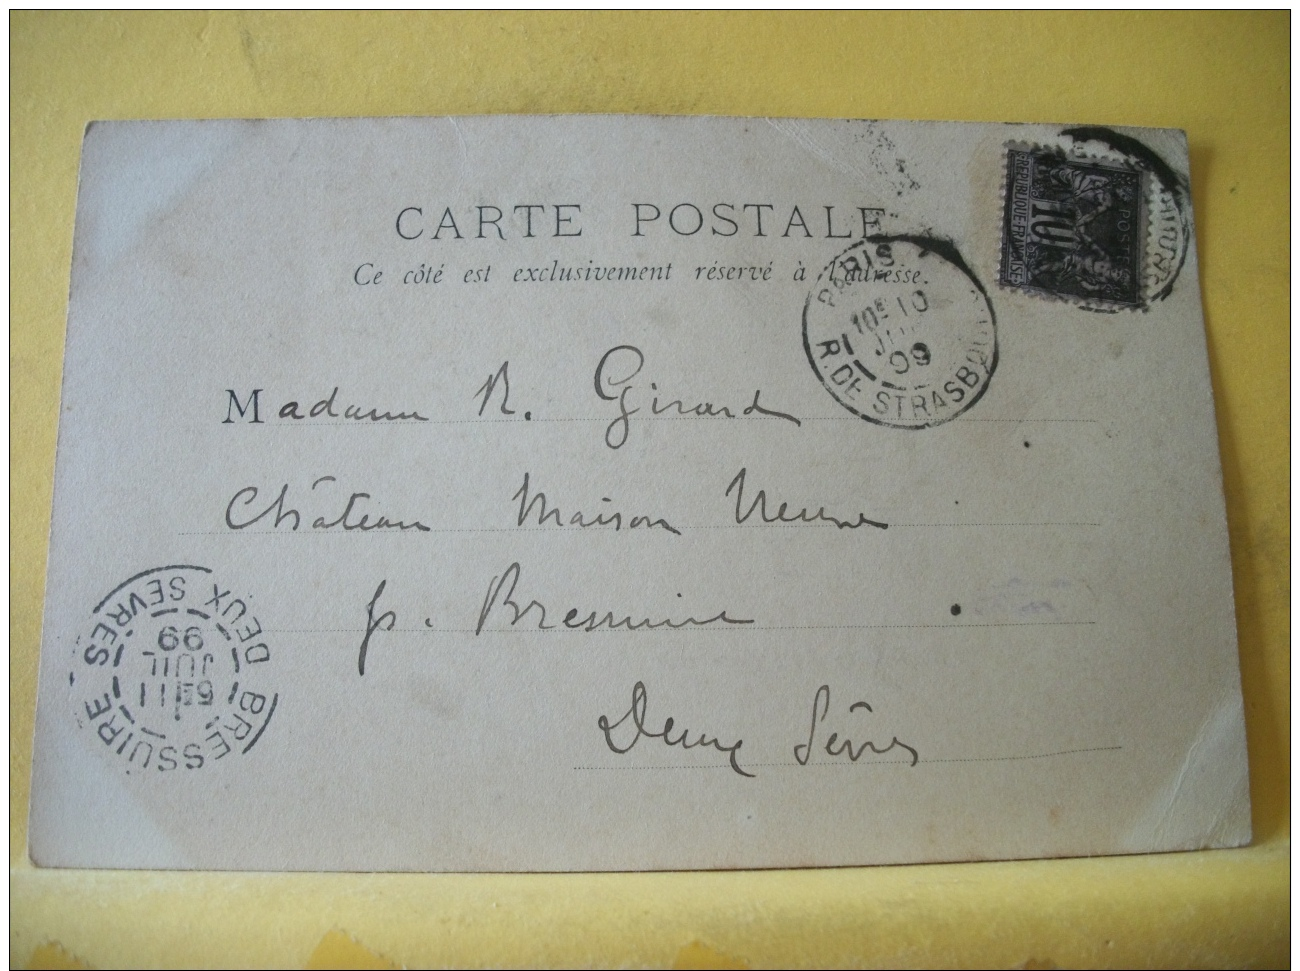 CARTE POSTALE
Ce côté est exclusivement réservé à l'adresse.
REPUBLIQUE FRANÇAISE
POSTES
10
PARIS
10E 10
99
R. DE STRASBOURG
Madame R. Girard
Château Maison Neuve
p. Bressuire
Deux Sèvres
BRESSUIRE
11
JUIL
99
DEUX SEVRES